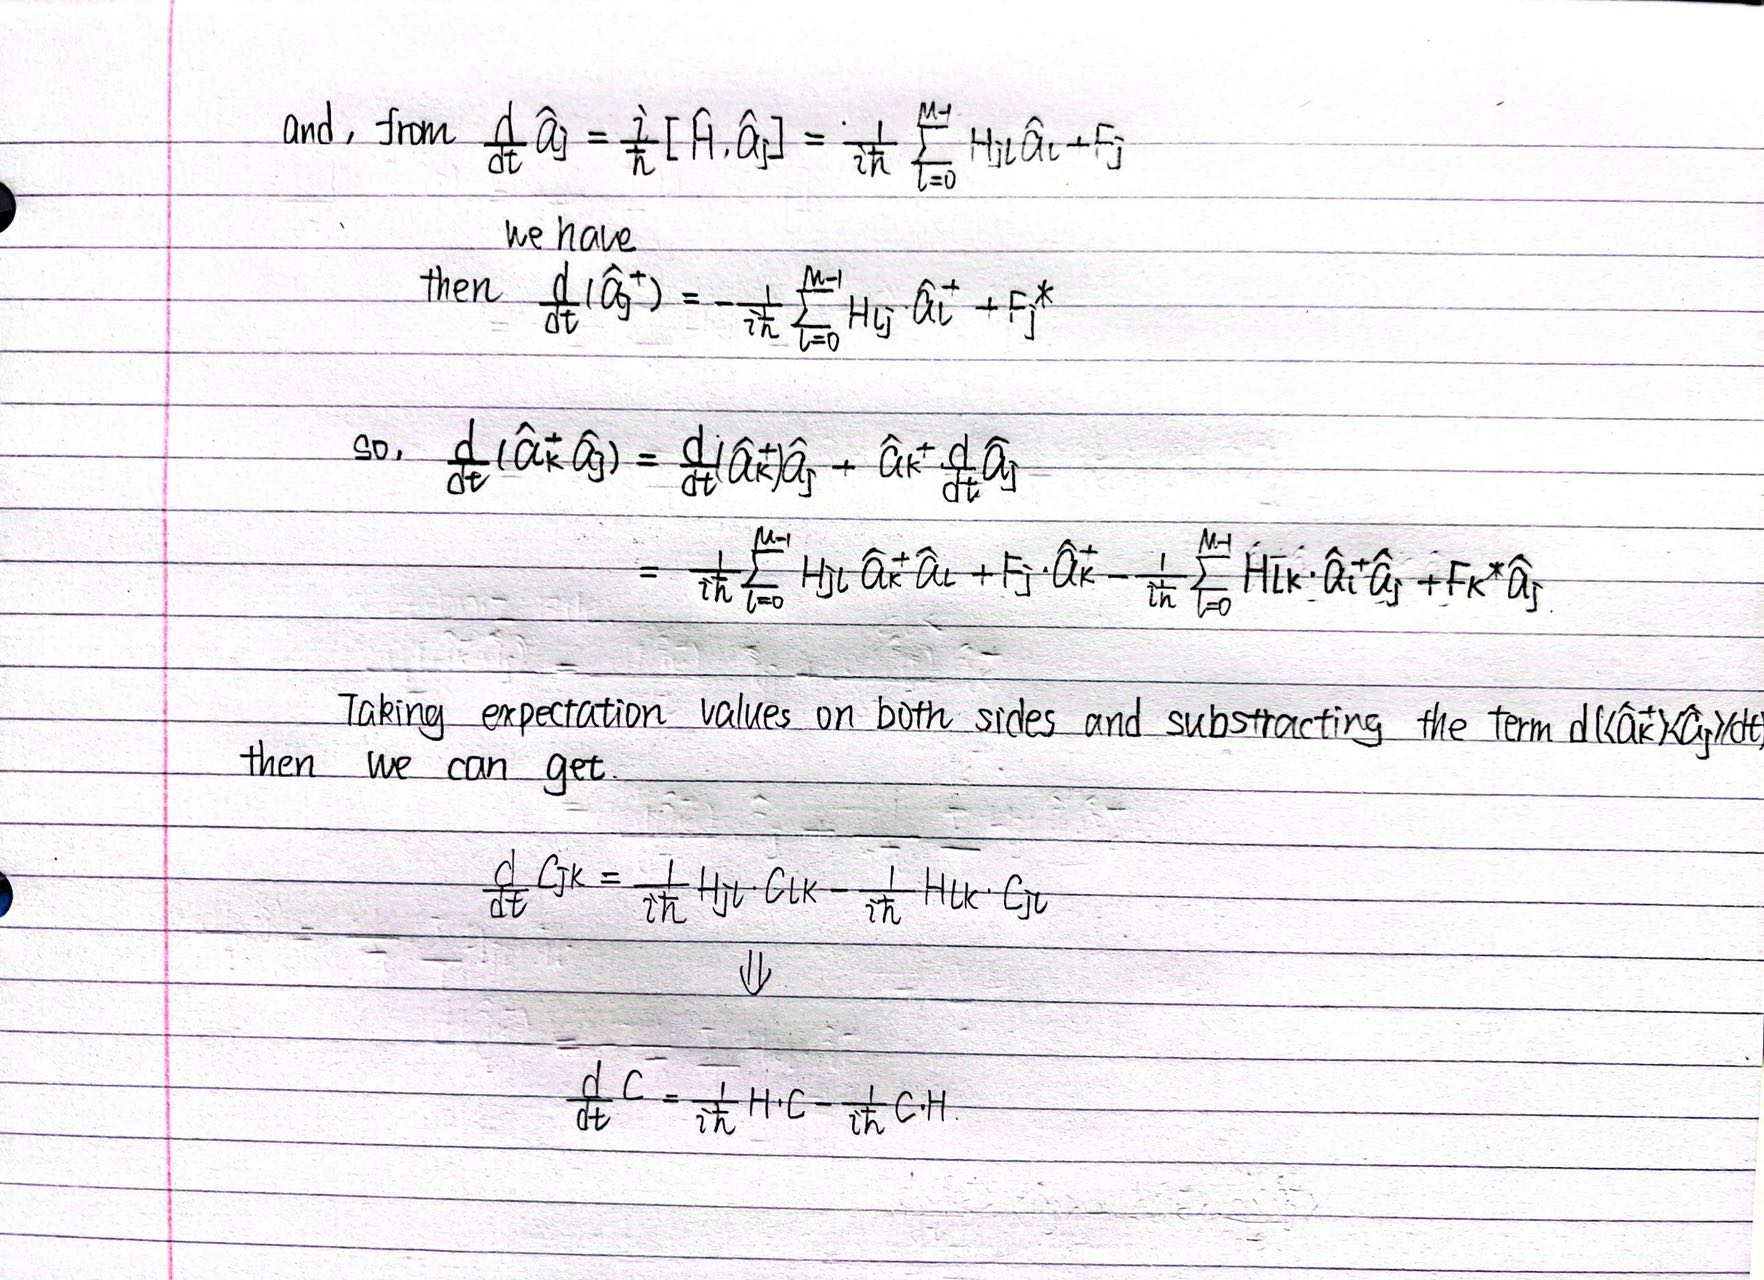 and, from d/dt âⱼ = i/ħ [Ĥ, âⱼ] = 1/iħ ∑_{l=0}^{M-1} H_{jl} â_l + F_j
we have
then d/dt (âⱼ⁺) = - 1/iħ ∑_{l=0}^{M-1} H_{lj} · â_l⁺ + F_j*
so, d/dt (â_k⁺ â_j) = d/dt (â_k⁺) â_j + â_k⁺ · d/dt â_j
= 1/iħ ∑_{l=0}^{M-1} H_{jl} â_k⁺ â_l + F_j · â_k⁺ - 1/iħ ∑_{l=0}^{M-1} H_{lk} · â_l⁺ â_j + F_k* â_j.
Taking expectation values on both sides and substracting the term d(<â_k⁺><â_j>)/dt,
then we can get.
d/dt C_{jk} = 1/iħ H_{jl} · C_{lk} - 1/iħ H_{lk} · C_{jl}
⇓
d/dt C = 1/iħ H·C - 1/iħ C·H.